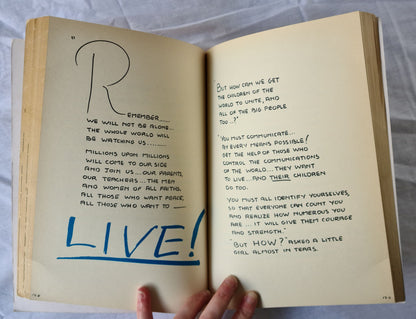 "Remember.....
we will not be alone...
the whole world will
be watching us.......
Millions upon millions
will come to our side
and join us... our parents,
our teachers... the men
and women of all faiths,
all those who want peace,
all those who want to —
LIVE!
But how can we get
the children of the
world to unite, and
all of the big people
too...?"
"You must communicate...
by every means possible!
Get the help of those who
control the communications
of the world... they want
to live... and their children
do too.
You must all identify yourselves,
so that everyone can count you
and realize how numerous you
are ... it will give them courage
and strength."
"But HOW?" asked a little
girl almost in tears.